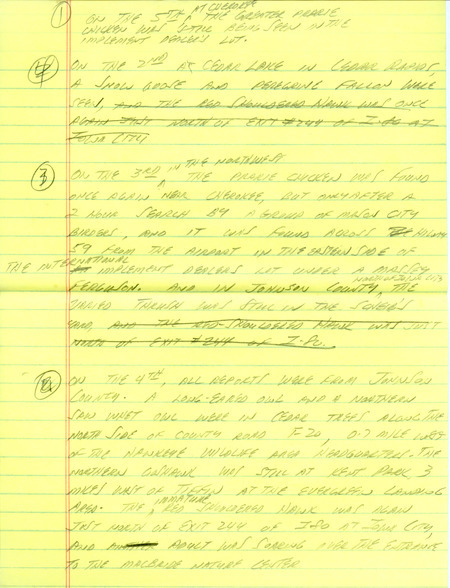 1 ON THE 5TH AT CHEROKEE THE GREATER PRAIRIE
CHICKEN WAS STILL BEING SEEN IN THE
IMPLEMENT DEALERS LOT.
4 ON THE 2ND AT CEDAR LAKE IN CEDAR RAPIDS,
A SNOW GOOSE AND PEREGRINE FALCON WERE
SEEN, AND THE RED SHOULDERED HAWK WAS ONCE
AGAIN JUST NORTH OF EXIT #244 OF I-80 AT
IOWA CITY
3 ON THE 3RD IN THE NORTHWEST THE PRAIRIE CHICKEN WAS FOUND
ONCE AGAIN NEAR CHEROKEE, BUT ONLY AFTER A
2 HOUR SEARCH BY A GROUP OF MASON CITY
BIRDERS, AND IT WAS FOUND ACROSS HIGHWAY
59 FROM THE AIRPORT IN THE EASTERN SIDE OF
THE INTERNATIONAL IMPLEMENT DEALERS LOT UNDER A MASSEY
FERGUSON. AND IN JOHNSON COUNTY, THE
VARIED THRUSH WAS STILL IN THE
YARD, AND THE RED-SHOULDERED HAWK WAS JUST
NORTH OF EXIT #244 OF I-80.
2 ON THE 4TH, ALL REPORTS WERE FROM JOHNSON
COUNTY. A LONG-EARED OWL AND A NORTHERN
SAW WHET OWL WERE IN CEDAR TREES ALONG THE
NORTH SIDE OF COUNTY ROAD F-20, 0.7 MILE WEST
OF THE HAWKEYE WILDLIFE AREA HEADQUARTERS. THE
NORTHERN GOSHAWK WAS STILL AT KENT PARK 3
MILES WEST OF TIFFIN AT THE EVERGREEN LANDING
AREA. THE IMMATURE RED SHOULDERED HAWK WAS AGAIN
JUST NORTH OF EXIT 244 OF I-80 AT IOWA CITY,
AND ADULT WAS SOARING OVER THE ENTRANCE
TO THE MACBRIDE NATURE CENTER